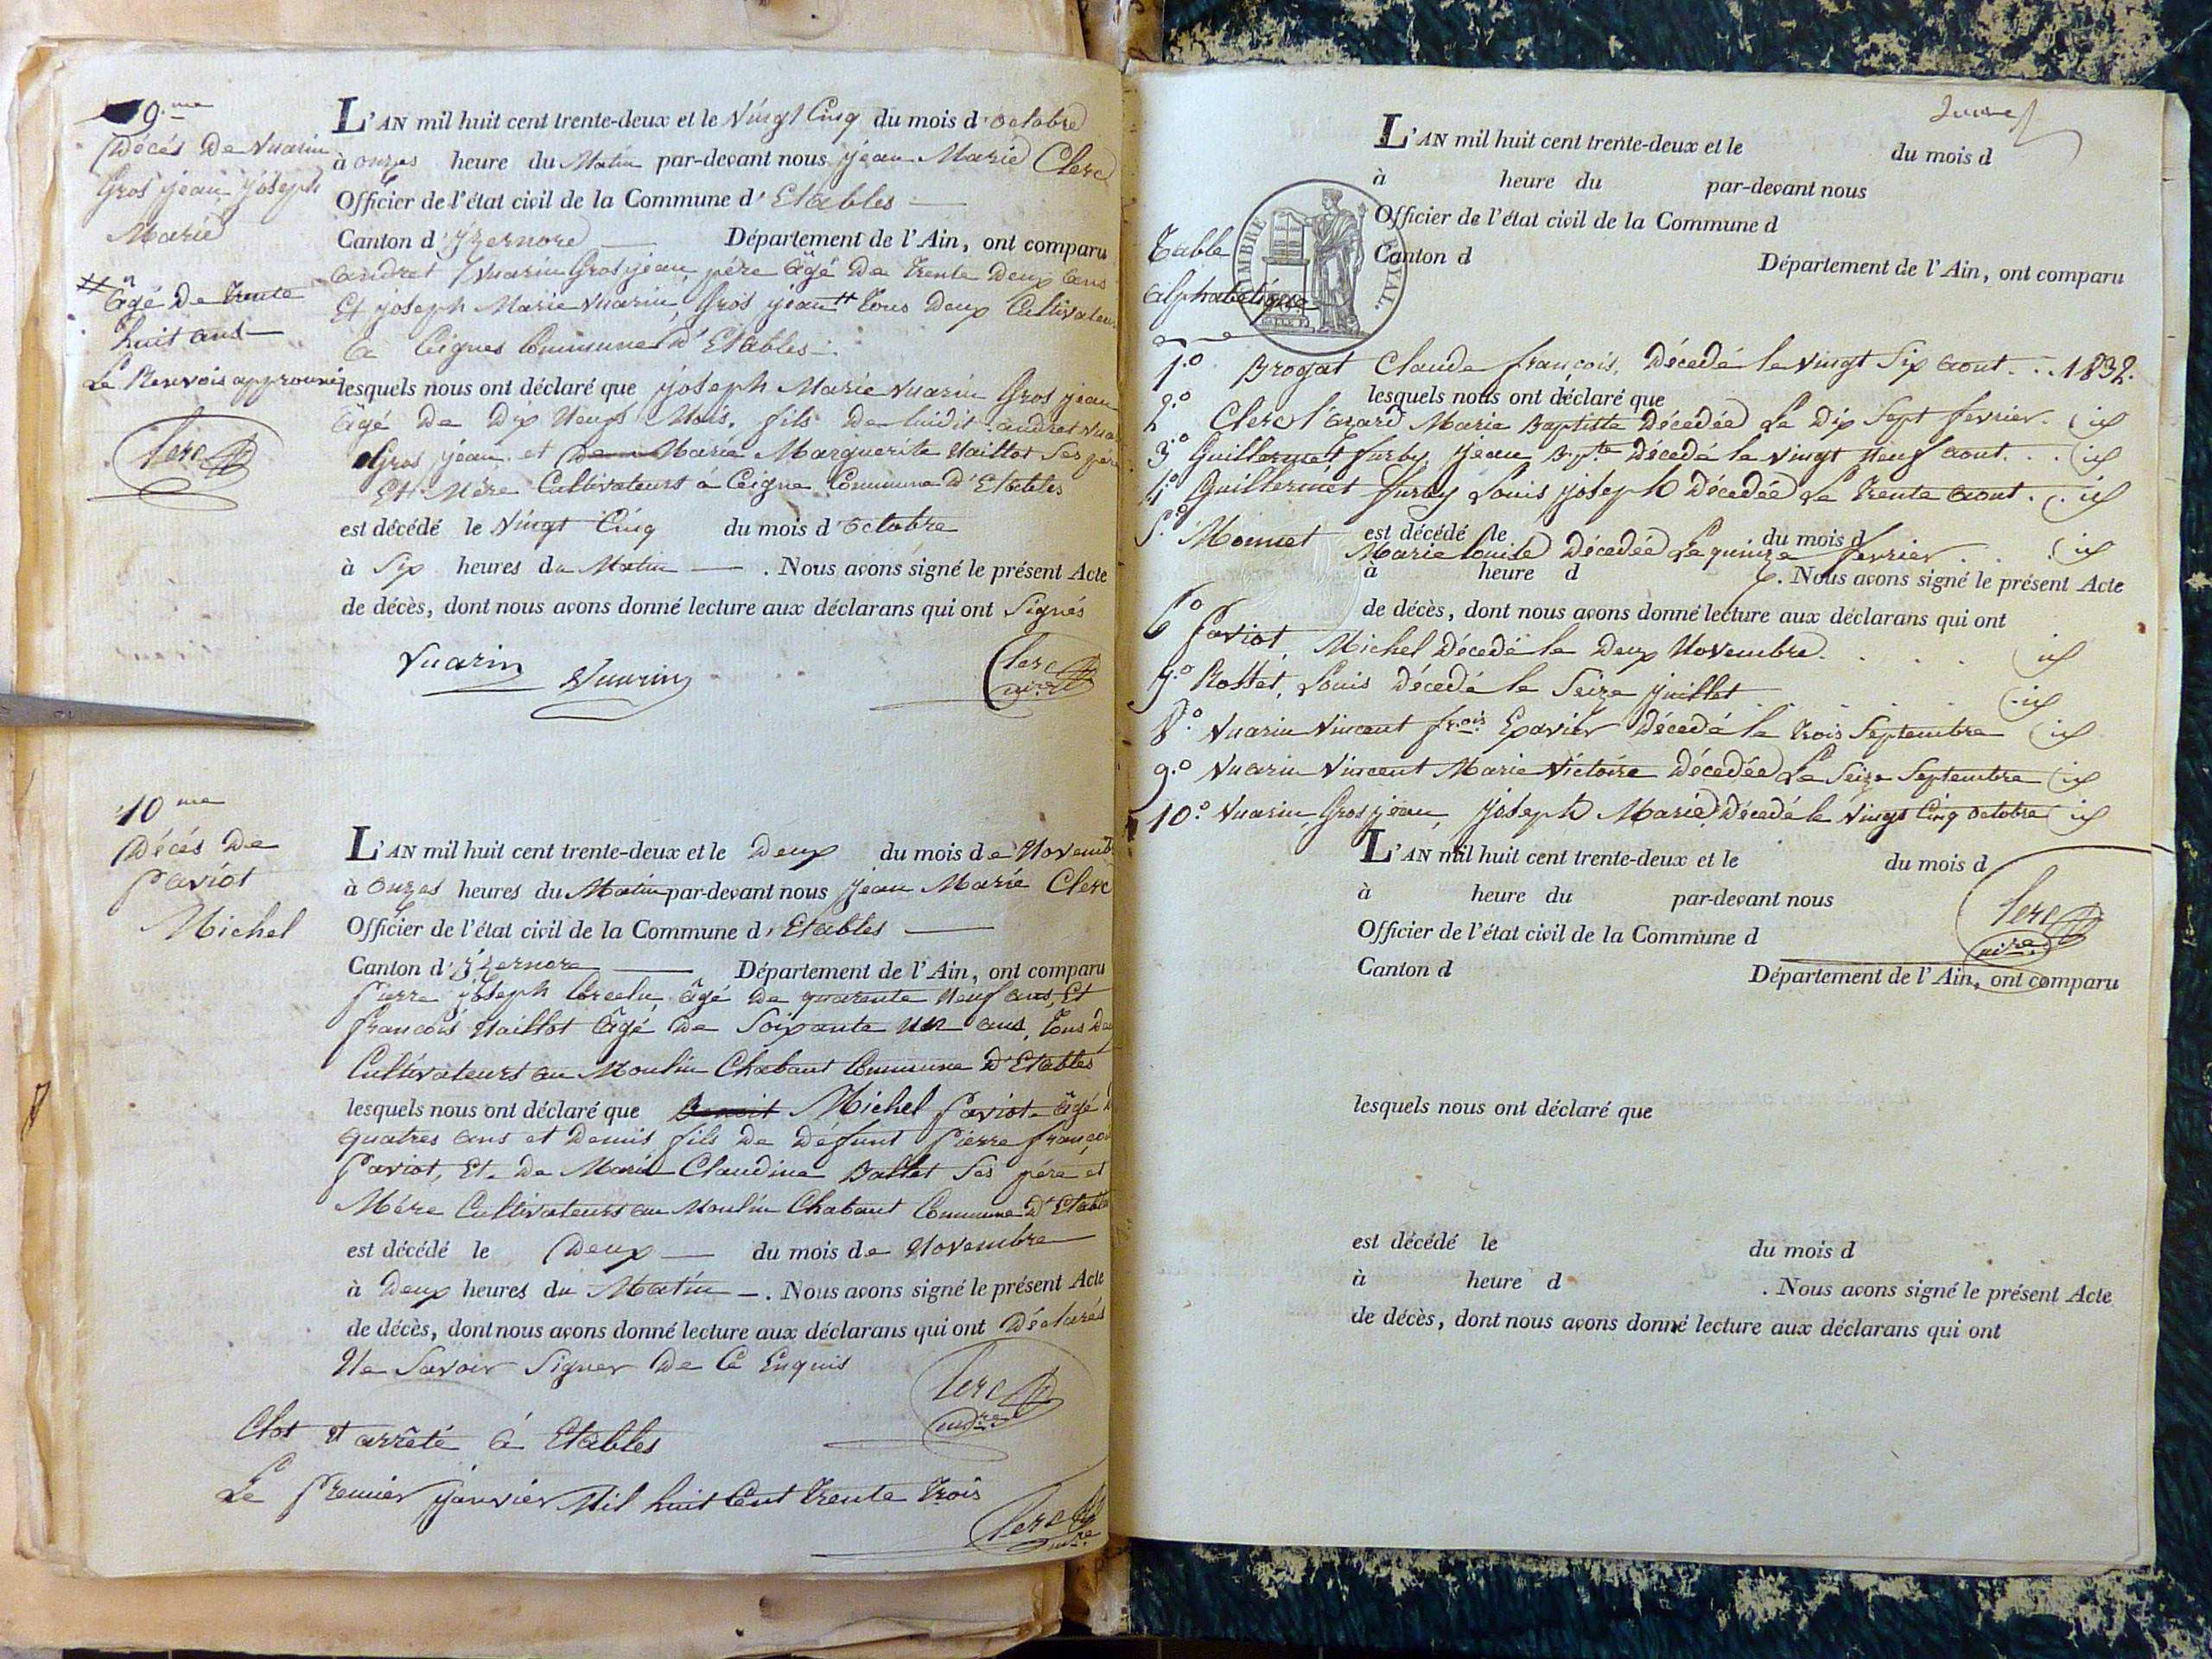 9.me
Décés De Vuarin
Gros jean joseph
Marie
# âgé De trente
huit ans
Le Renvois approuvé
Clerc
L'AN mil huit cent trente-deux et le Vingt Cinq du mois d'octobre
à onzes heure du Matin par-devant nous jean Marie Clerc
Officier de l'état civil de la Commune d'Etables
Canton d'Yzernore Département de l'Ain, ont comparu
andret Vuarin Gros jean, pére âgé De trente Deux ans
Et joseph Marie Vuarin, Gros jean # tous Deux Cultivateurs
a Ceignes Commune d'Etables
lesquels nous ont déclaré que joseph Marie Vuarin Gros jean
âgé De Dix Neufs Mois, fils De ludit andret
Gros jean et Marie Marguerite Vaillot Ses pére
Et Mére Cultivateurs á Ceigne Commune D'Etables
est décédé le Vingt Cinq du mois d'octobre
à Six heures du Matin . Nous avons signé le présent Acte
de décès, dont nous avons donné lecture aux déclarans qui ont Signés
Vuarin Vuarin Clerc
mire
10 me
Décés De
Paviot
Michel
L'AN mil huit cent trente-deux et le Deux du mois de Novemb
à onzes heures du Matin par-devant nous jean Marie Clerc
Officier de l'état civil de la Commune d'Etables
Canton d'Yzernore Département de l'Ain, ont comparu
Pierre joseph âgé De quarente Neuf ans, Et
francois Vaillot âgé De Soixante un ans, tous
Cultivateurs au Moulin Chabaut Commune D'Etables
lesquels nous ont déclaré que Benoit Michel Paviot âgé
quatres ans et Demis fils De Défunt Pierre françois
Paviot, Et De Marie Claudine Ballet Ses pére et
Mére Cultivateurs au Moulin Chabaut Commune D'Etables
est décédé le Deux du mois de Novembre
à Deux heures du Matin . Nous avons signé le présent Acte
de décès, dont nous avons donné lecture aux déclarans qui ont Déclarés
Ne Savoir Signer De Ce Enquis
Clerc
mire
Clos et arrêté á Etables
Le Premier janvier Mil huit Cent Trente Trois
Clerc
mire
L'AN mil huit cent trente-deux et le du mois d
à heure du par-devant nous
Officier de l'état civil de la Commune d
Canton d
Département de l'Ain, ont comparu
TIMBRE ROYAL.
Table
alphabétique
1.o Brogat Claude françois, Décedé le Vingt Six aout . . 1832.
lesquels nous ont déclaré que
2.o Clerc l'azard Marie Baptiste Décedée Le Dix Sept fevrier . id
3.o Guillermet furby jean Bpte Décedé le Vingt Neuf aout . . id
4.o Guillermet furby Louis joseph Décedée Le Trente aout . . id
est décédé le du mois d
5.o Monnet Marie louise Décedée Le quinze fevrier . . id
à heure d . Nous avons signé le présent Acte
de décès, dont nous avons donné lecture aux déclarans qui ont
6.o Paviot, Michel Décedé le Deux Novembre . . . id
7.o Rostet, Louis Décedé le Seize juillet . . . id
8.o Vuarin Vincent frois Exavier Décedé le Trois Septembre id
9.o Vuarin Vincent Marie Victoire Décedée Le Seize Septembre id
10.o Vuarin, Gros jean, joseph Marie, Décedé le Vingt Cinq octobre id
L'AN mil huit cent trente-deux et le du mois d
à heure du par-devant nous
Clerc
mire
Officier de l'état civil de la Commune d
Canton d Département de l'Ain, ont comparu
lesquels nous ont déclaré que
est décédé le du mois d
à heure d . Nous avons signé le présent Acte
de décès, dont nous avons donné lecture aux déclarans qui ont